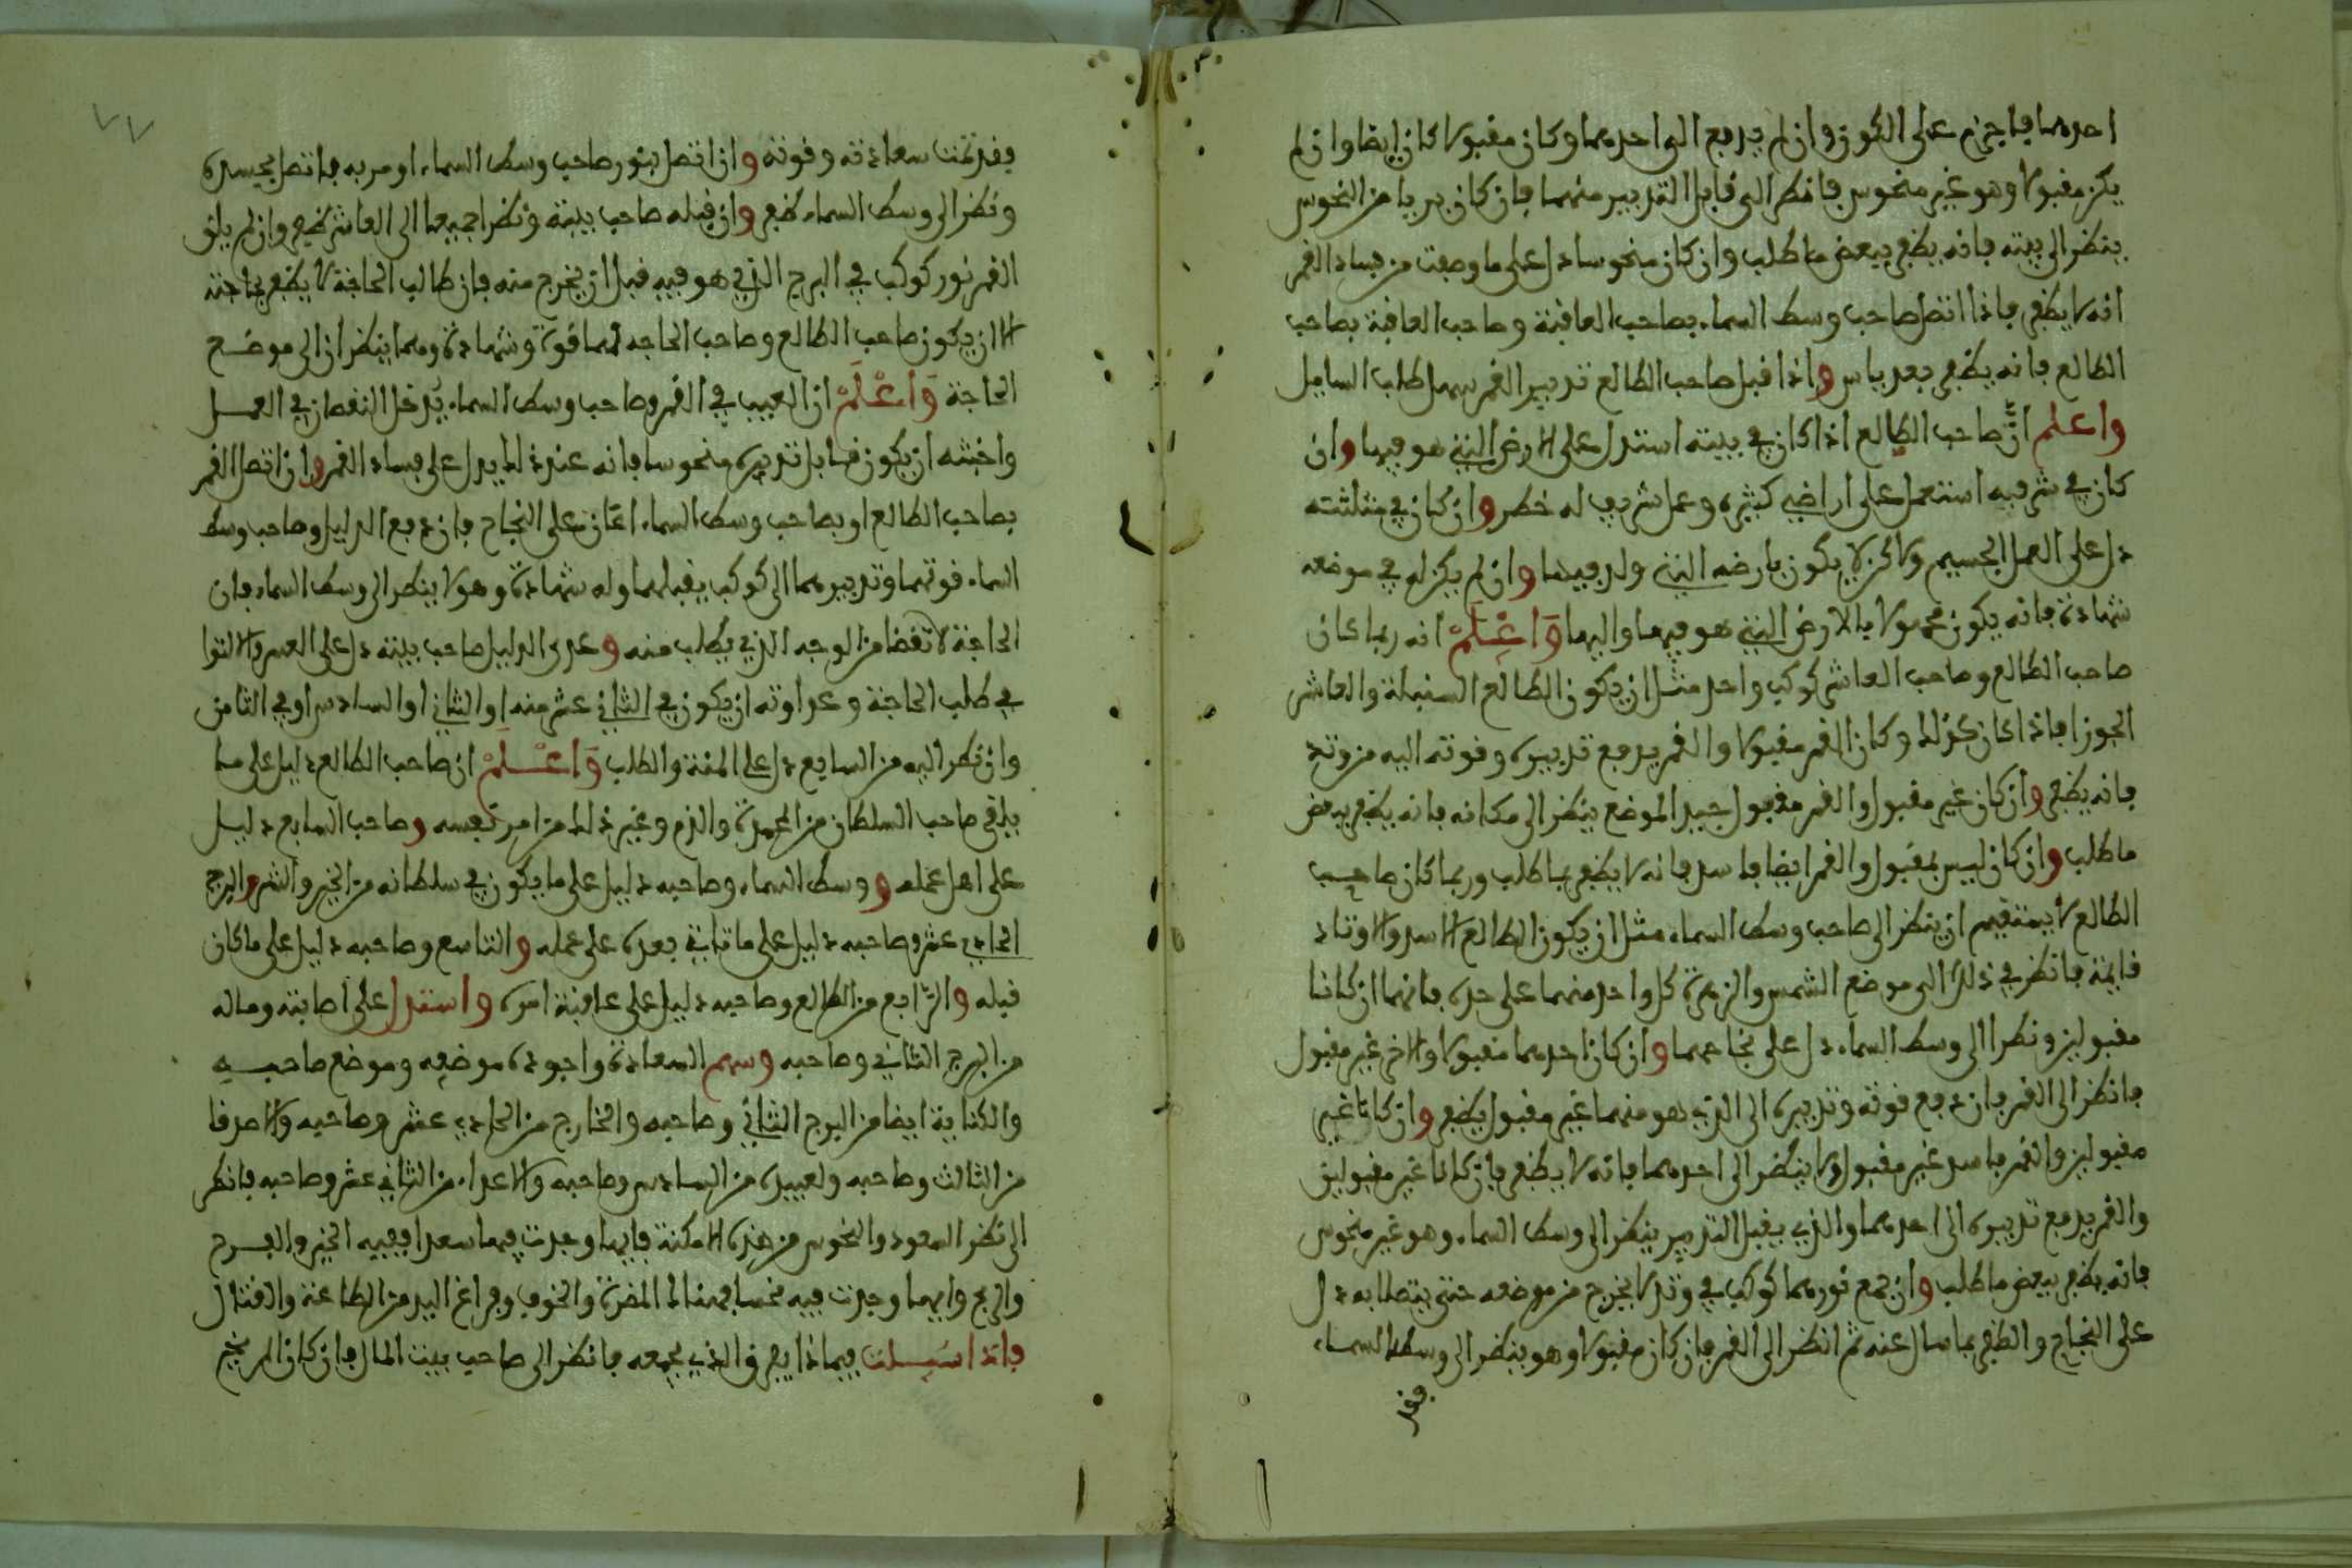 احدهما فاجزم على الكون وان لم يدفع الى احدهما وكان مقبولا كان ايضا وان لم
يكن مقبولا وهو غير منحوس فانظر الى قابل التدبير منهما فان كان بريا من النحوس
ينظر الى بيته فانه يظفر ببعض ما طلب وان كان منحوسا دل على ما وصفت من فساد القمر
انه لا يظفر فاذا اتصل صاحب وسط السماء بصاحب العاقبة وصاحب العاقبة بصاحب
الطالع فانه يظفر بعد ياس واذا قبل صاحب الطالع تدبير القمر سهل طلب السايل
واعلم ان صاحب الطالع اذا كان في بيته استدل على الارض التي هو فيها وان
كان في شرفه استعمل على اراضي كثيرة وعمل شريف له خطر وان كان في مثلثته
دل على العمل الجسيم ولاكن لا يكون بارضه التي ولد فيها وان لم يكن له في موضعه
شهادة فانه يكون مجهولا بالارض التي هو فيها واليها وَاعْلَمْ انه ربما كان
صاحب الطالع وصاحب العاشر كوكب واحد مثل ان يكون الطالع السنبلة والعاشر
الجوزا فاذا كان كذلك وكان القمر مقبولا والقمر يدفع تدبيره وقوته اليه من وتد
فانه يظفر وان كان غير مقبول والقمر مقبول جيد الموضع ينظر الى مكانه فانه يظفر ببعض
ما طلب وان كان ليس بمقبول والقمر ايضا فاسد فانه لا يظفر بما طلب وربما كان صاحب
الطالع لا يستقيم ان ينظر الى صاحب وسط السماء مثل ان يكون الطالع الاسد والاوتاد
قايمة فانظر في ذلك الى موضع الشمس والزهرة كل واحد منهما على حدة فانهما ان كانا
مقبولين ونظرا الى وسط السماء دل على نجاحهما وان كان احدهما مقبولا والاخر غير مقبول
فانظر الى القمر فان دفع قوته وتدبيره الى الذي هو منهما غير مقبول يظفر وان كانا غير
مقبولين والقمر فاسد غير مقبول ولا ينظر الى احدهما فانه لا يظفر فان كانا غير مقبولين
والقمر يدفع تدبيره الى احدهما والذي يقبل التدبير ينظر الى وسط السماء وهو غير منحوس
فانه يظفر ببعض ما طلب وان جمع نورهما كوكب في وتد لا يخرج من موضعه حتى يتصلا به دل
على النجاح والظفر بما سال عنه ثم انظر الى القمر فان كان مقبولا وهو ينظر الى وسط السماء
فقد
٧٧
فقد تمت سعادته وقوته وان اتصل بنور صاحب وسط السماء او مر به فاتصل بجسده
ونظر الى وسط السماء ظفر وان قبله صاحب بيته ونظرا جميعا الى العاشر ظفر وان لم يلق
القمر نور كوكب في البرج الذي هو فيه قبل ان يخرج منه فان طالب الحاجة لا يظفر بحاجته
الا ان يكون صاحب الطالع وصاحب الحاجة لهما قوة وشهادة وهما ينظران الى موضع
الحاجة وَاعْلَمْ ان العيب في القمر وصاحب وسط السماء يُدخل النقصان في العمل
واخبثه ان يكون قابل تدبيره منحوسا فانه عند ذلك يدل على فساد القمر وان اتصل القمر
بصاحب الطالع او بصاحب وسط السماء اعان على النجاح فان دفع الدليل وصاحب وسط
السماء قوتهما وتدبيرهما الى كوكب يقبلهما وله شهادة وهو لا ينظر الى وسط السماء فان
الحاجة لا تقضا من الوجه الذي يطلب منه وعدو الدليل صاحب بيته دل على العسر والالتوا
في طلب الحاجة وعداوته ان يكون في الثاني عشر منه او الثاني او السادس او في الثامن
وان نظر اليه من السابع دل على المنة والطلب وَاعْلَمْ ان صاحب الطالع دليل على ما
يلقى صاحب السلطان من المحمدة والذم وغير ذلك من امر نفسه وصاحب السابع دليل
على اهل عمله ووسط السماء وصاحبه دليل على ما يكون في سلطانه من الخير والشر والبرج
الحادي عشر وصاحبه دليل على ما ياتي بعده على عمله والتاسع وصاحبه دليل على ما كان
قبله والرّابع من الطالع وصاحبه دليل على عاقبة امره واستدل على اصابته وماله
من البرج الثاني وصاحبه وسهم السعادة واجودة موضعه وموضع صاحبه
والكتابة ايضا من البرج الثاني وصاحبه والخارج من الحادي عشر وصاحبه والاصدقا
من الثالث وصاحبه ولعبيده من السادس وصاحبه والاعداء من الثاني عشر وصاحبه فانظر
الى نظر السعود والنحوس من هذه الامكنة فايها وجدت فيها سعدا ففيه الخير والفرح
والربح وايهما وجدت فيه نحسا فهنالك المضرة والخوف وفراغ اليد من الطاعة والقتال
فاذا سُيلت فيماذا يفرق الذي يجمعه فانظر الى صاحب بيت المال فان كان المريخ